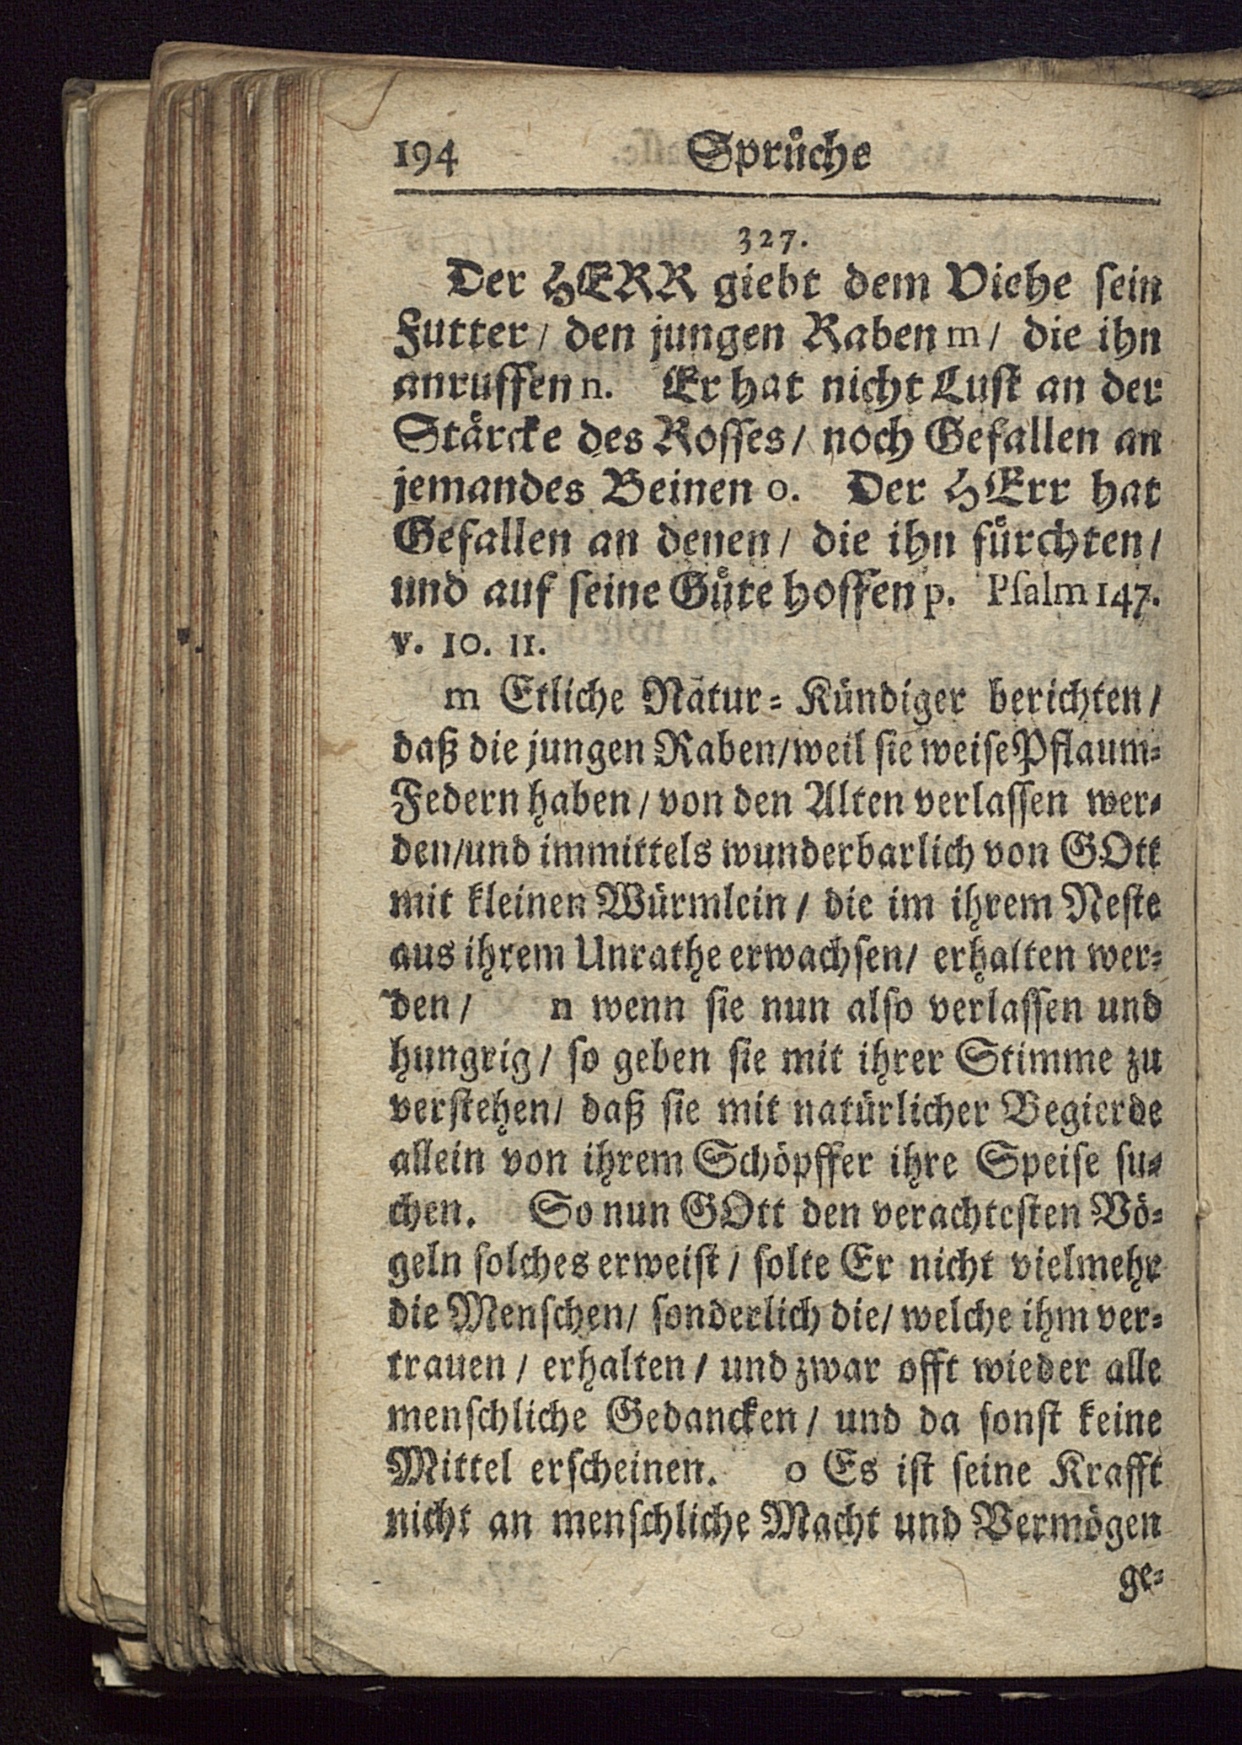 194 Spruͤche
327.
Der HERR giebt dem Viehe ſein
Futter / den jungen Raben m / die ihn
anruffen n. Er hat nicht Luſt an der
Staͤrcke des Roſſes / noch Gefallen an
jemandes Beinen o. Der HErr hat
Gefallen an denen / die ihn fuͤrchten /
und auf ſeine Guͤte hoffen p. Pſalm 147.
v. 10. 11.
m Etliche Natur⸗Kündiger berichten /
daß die jungen Raben / weil ſie weiſe Pflaum⸗
Federn haben / von den Alten verlaſſen wer⸗
den / und immittels wunderbarlich von GOtt
mit kleinen Würmlein / die im ihrem Neſte
aus ihrem Unrathe erwachſen / erhalten wer⸗
den / n wenn ſie nun alſo verlaſſen und
hungrig / ſo geben ſie mit ihrer Stimme zu
verſtehen / daß ſie mit natürlicher Begierde
allein von ihrem Schöpffer ihre Speiſe ſu⸗
chen. So nun GOtt den verachteſten Vö⸗
geln ſolches erweiſt / ſolte Er nicht vielmehr
die Menſchen / ſonderlich die / welche ihm ver⸗
trauen / erhalten / und zwar offt wieder alle
menſchliche Gedancken / und da ſonſt keine
Mittel erſcheinen. o Es iſt ſeine Krafft
nicht an menſchliche Macht und Vermögen
ge⸗